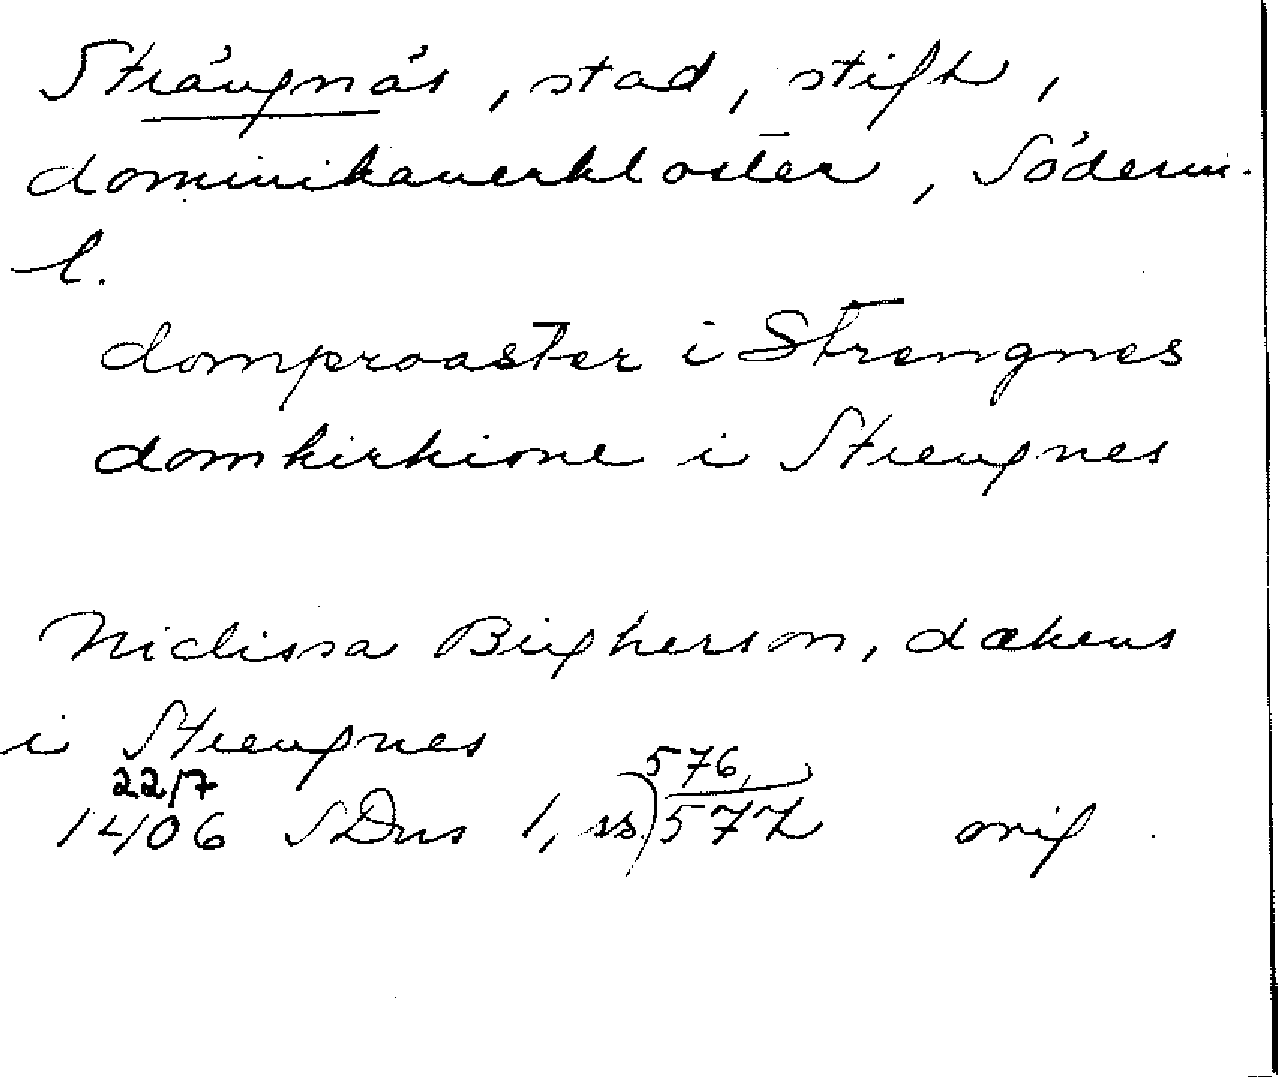 Strängnäs, stad, stift,
dominikanerkloster, Söderm-
l.
domproaster i Strengnes
domkirkione i Strengnes
Niclissa Birghersson, dækens
i Strengnes
22/7 576,
1406 SDns 1, ss 577 orig